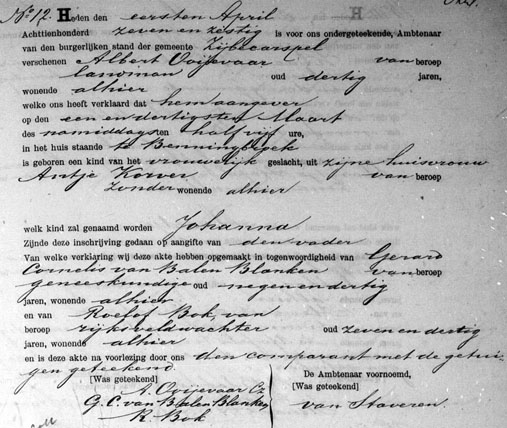 No 12. Heden den eersten April
Achttienhonderd zeven en zestig is voor ons ondergeteekende, Ambtenaar
van den burgerlijken stand der gemeente Zijbecarspel
verschenen Albert Ooijevaar van beroep
landman oud dertig jaren,
wonende alhier
welke ons heeft verklaard dat hem aangever
op den een en dertigsten Maart
des namiddags ten half vijf ure,
in het huis staande te Benningbroek
is geboren een kind van het vrouwelijk geslacht, uit zijne huisvrouw
Antje Korver van beroep
zonder wonende alhier
welk kind zal genaamd worden Johanna
Zijnde deze inschrijving gedaan op aangifte van den vader
Van welke verklaring wij deze akte hebben opgemaakt in tegenwoordigheid van Gerard
Cornelis van Balen Blanken van beroep
geneeskundige oud negen en dertig
jaren, wonende alhier
en van Roelof Bok, van
beroep rijksveldwachter oud zeven en dertig
jaren, wonende alhier
en is deze akte na voorlezing door ons den comparant met de getui-
gen geteekend.
[Was geteekend] De Ambtenaar voornoemd,
A. Ooijevaar Cz [Was geteekend]
G. C. van Balen Blanken van Staveren.
R. Bok